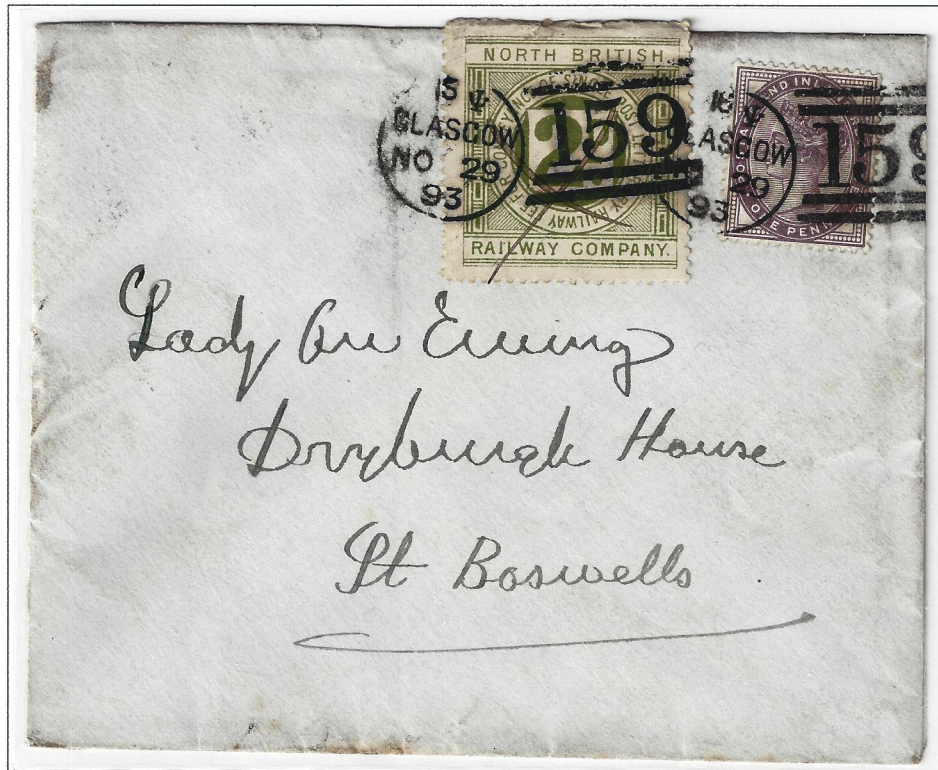 NORTH BRITISH
2d
RAILWAY COMPANY.
13
GLASGOW
NO 29
93
159
GLASGOW
29
93
159
POSTAGE AND INLAND
ONE PENNY
Lady
Dryburgh House
St Boswells